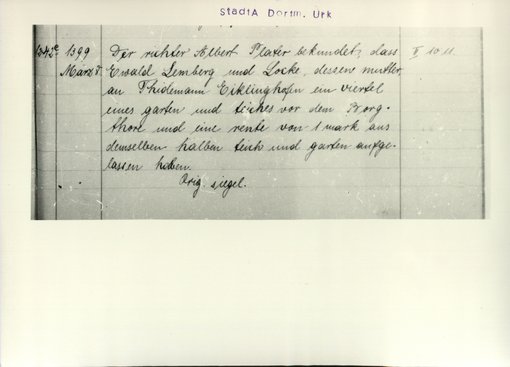 StadtA Dortm. Urk
1342c 1399 Der richter Albert Plater bekundet, dass II 10 11
März 5. Ewald Lemberg und Locke, dessen mutter,
an Thidemann Ecklinghofen ein viertel
eines garten und teiches vor dem Borg-
thore und eine rente von 1 mark aus
demselben halben teich und garten aufge-
lassen haben.
Orig. siegel.